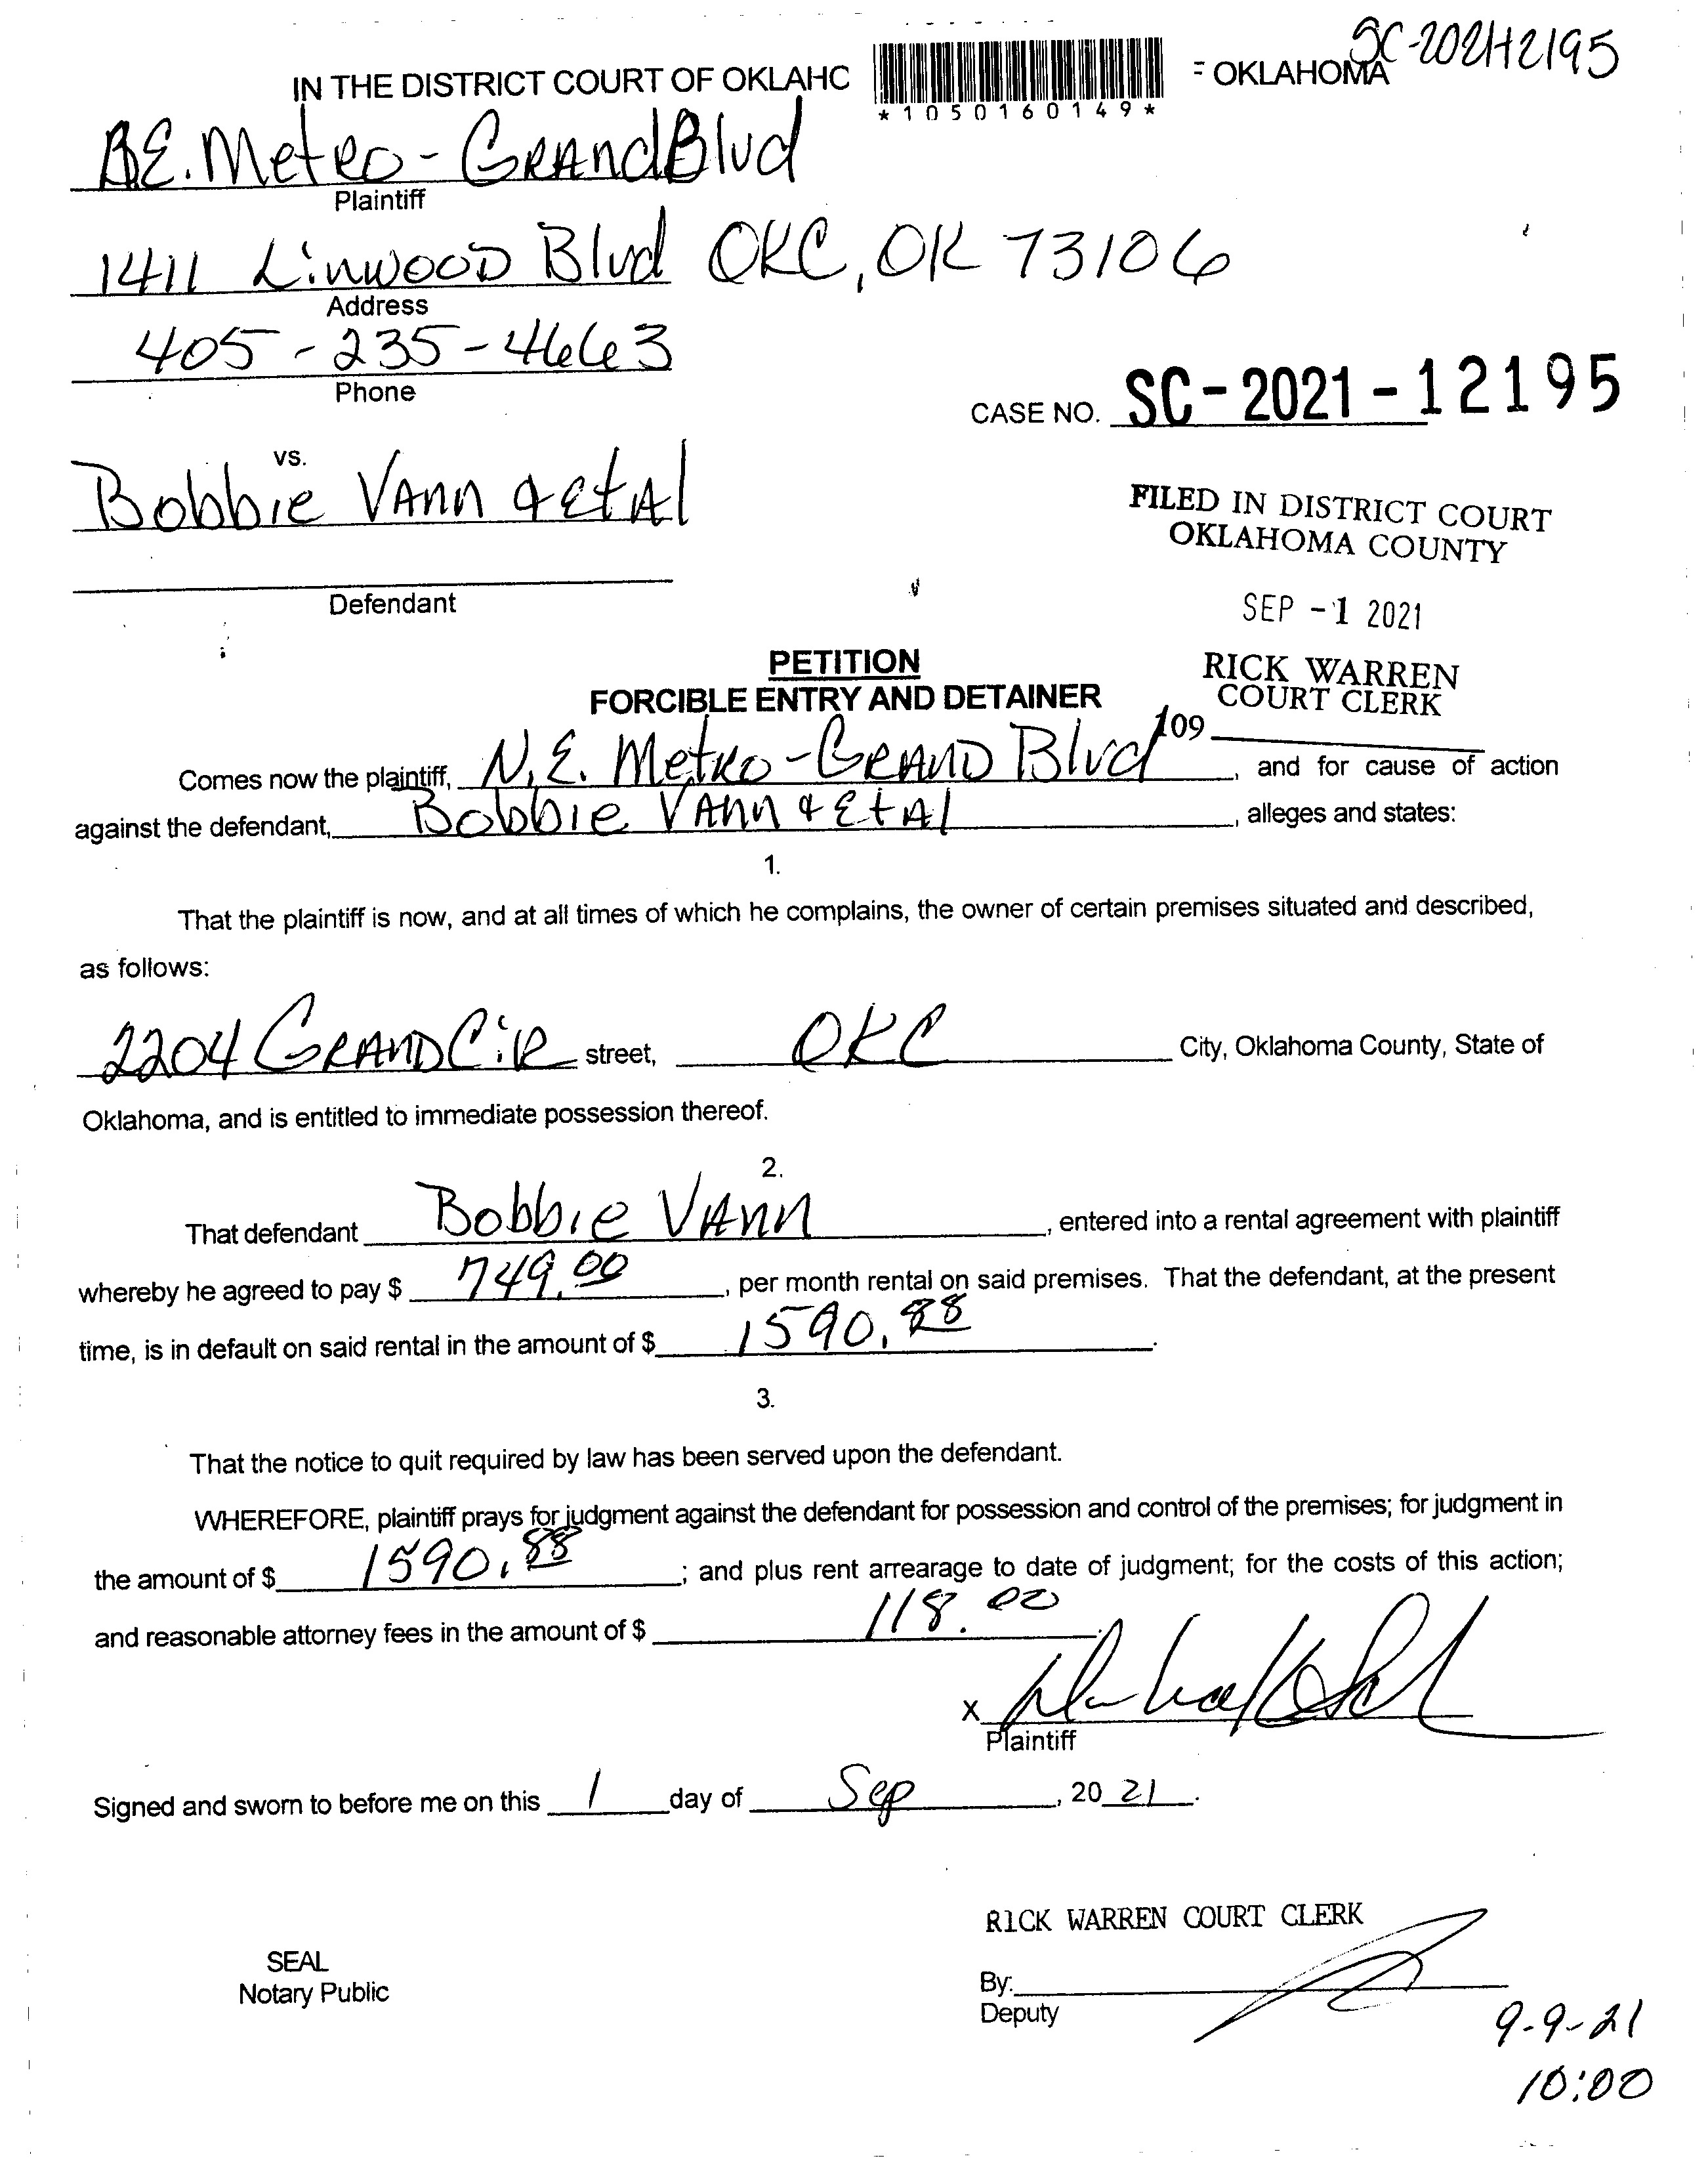 SC-2021-12195
IN THE DISTRICT COURT OF OKLAHO OKLAHOMA
*1050160149*
B.E. Metro - Grand Blvd
Plaintiff
1411 Linwood Blvd OKC, OK 73106
Address
405-235-4663
Phone
CASE NO. SC-2021-12195
vs.
Bobbie Vann & et Al
FILED IN DISTRICT COURT
OKLAHOMA COUNTY
Defendant
SEP -1 2021
PETITION
RICK WARREN
FORCIBLE ENTRY AND DETAINER
COURT CLERK
109
Comes now the plaintiff, N.E. Metro - Grand Blvd, and for cause of action
against the defendant, Bobbie Vann & Et Al, alleges and states:
1.
That the plaintiff is now, and at all times of which he complains, the owner of certain premises situated and described,
as follows:
2204 Grand Cir street, OKC City, Oklahoma County, State of
Oklahoma, and is entitled to immediate possession thereof.
2.
That defendant Bobbie Vann, entered into a rental agreement with plaintiff
whereby he agreed to pay $ 749.00, per month rental on said premises. That the defendant, at the present
time, is in default on said rental in the amount of $ 1590.88.
3.
That the notice to quit required by law has been served upon the defendant.
WHEREFORE, plaintiff prays for judgment against the defendant for possession and control of the premises; for judgment in
the amount of $ 1590.88; and plus rent arrearage to date of judgment; for the costs of this action;
and reasonable attorney fees in the amount of $ 118.00.
X
Plaintiff
Signed and sworn to before me on this 1 day of Sep, 20 21.
RICK WARREN COURT CLERK
SEAL
Notary Public
By:
Deputy
9-9-21
10:00